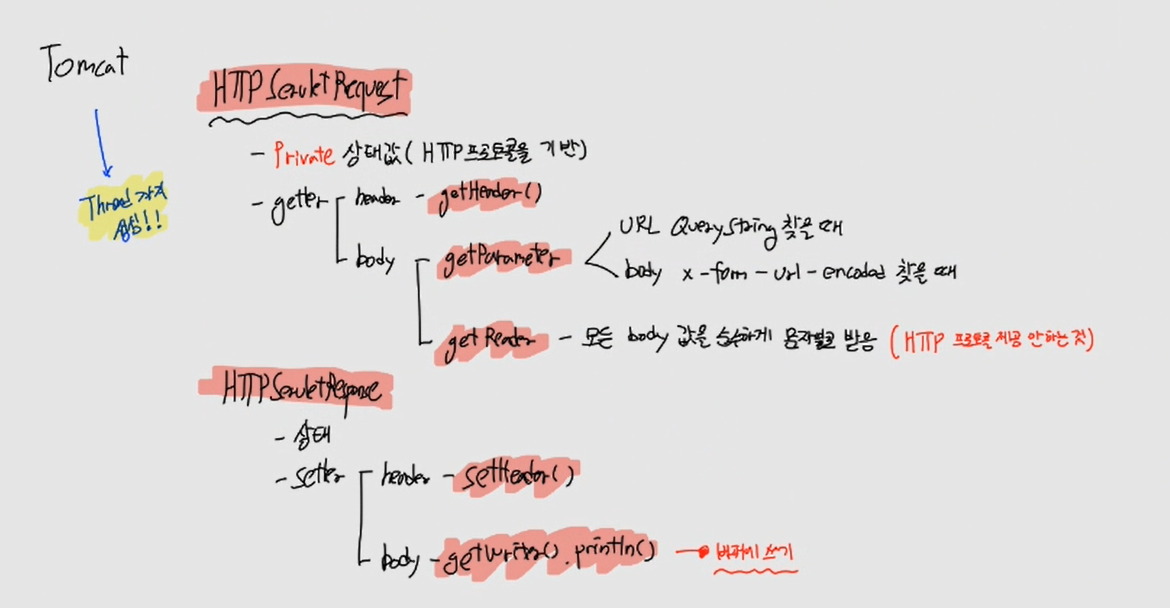 Tomcat
Thread 각자
생성!!
HTTPServletRequest
- Private 상태값 (HTTP 프로토콜을 기반)
- getter
header - getHeader()
body
getParameter
URL QueryString 찾을 때
body x-form-url-encoded 찾을 때
getReader - 모든 body 값을 순수하게 문자열로 받음 (HTTP 프로토콜 제공 안하는 것)
HTTPServletResponse
- 상태
- setter
header - setHeader()
body - getWriter().println() → 버퍼에 쓰기